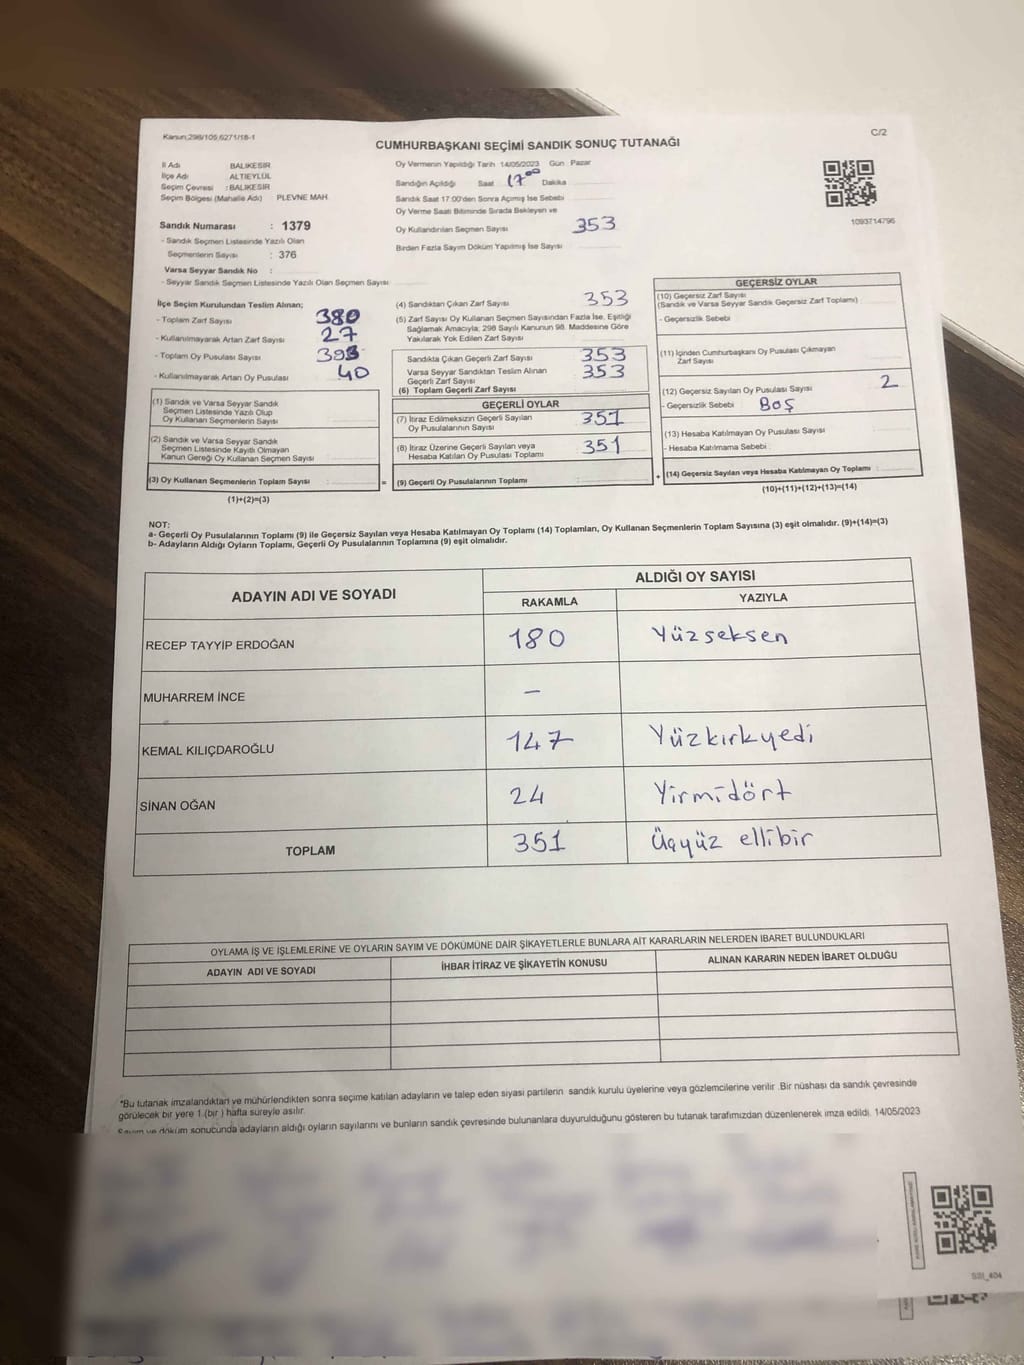 Kanun;298/105,6271/18-1
C/2
CUMHURBAŞKANI SEÇİMİ SANDIK SONUÇ TUTANAĞI
İl Adı BALIKESİR
İlçe Adı ALTIEYLÜL
Seçim Çevresi : BALIKESİR
Seçim Bölgesi (Mahalle Adı) PLEVNE MAH.
Sandık Numarası : 1379
- Sandık Seçmen Listesinde Yazılı Olan
Seçmenlerin Sayısı : 376
Varsa Seyyar Sandık No :
- Seyyar Sandık Seçmen Listesinde Yazılı Olan Seçmen Sayısı
Oy Vermenin Yapıldığı Tarih 14/05/2023 Gün Pazar
Sandığın Açıldığı Saat 17⁰⁰ Dakika
Sandık Saat 17.00'den Sonra Açılmış İse Sebebi
Oy Verme Saati Bitiminde Sırada Bekleyen ve
Oy Kullandırılan Seçmen Sayısı 353
Birden Fazla Sayım Döküm Yapılmış İse Sayısı
1093714796
İlçe Seçim Kurulundan Teslim Alınan;
- Toplam Zarf Sayısı 380
- Kullanılmayarak Artan Zarf Sayısı 27
- Toplam Oy Pusulası Sayısı
- Kullanılmayarak Artan Oy Pusulası 40
(1) Sandık ve Varsa Seyyar Sandık
Seçmen Listesinde Yazılı Olup
Oy Kullanan Seçmenlerin Sayısı
(2) Sandık ve Varsa Seyyar Sandık
Seçmen Listesinde Kayıtlı Olmayan
Kanun Gereği Oy Kullanan Seçmen Sayısı
(3) Oy Kullanan Seçmenlerin Toplam Sayısı :
(1)+(2)=(3)
(4) Sandıktan Çıkan Zarf Sayısı 353
(5) Zarf Sayısı Oy Kullanan Seçmen Sayısından Fazla İse, Eşitliği
Sağlamak Amacıyla; 298 Sayılı Kanunun 98. Maddesine Göre
Yakılarak Yok Edilen Zarf Sayısı
Sandıkta Çıkan Geçerli Zarf Sayısı 353
Varsa Seyyar Sandıktan Teslim Alınan 353
Geçerli Zarf Sayısı
(6) Toplam Geçerli Zarf Sayısı
GEÇERLİ OYLAR
(7) İtiraz Edilmeksizin Geçerli Sayılan 351
Oy Pusulalarının Sayısı
(8) İtiraz Üzerine Geçerli Sayılan veya 351
Hesaba Katılan Oy Pusulası Toplamı
= (9) Geçerli Oy Pusulalarının Toplamı :
GEÇERSİZ OYLAR
(10) Geçersiz Zarf Sayısı
(Sandık ve Varsa Seyyar Sandık Geçersiz Zarf Toplamı)
- Geçersizlik Sebebi
(11) İçinden Cumhurbaşkanı Oy Pusulası Çıkmayan
Zarf Sayısı
(12) Geçersiz Sayılan Oy Pusulası Sayısı 2
- Geçersizlik Sebebi BOŞ
(13) Hesaba Katılmayan Oy Pusulası Sayısı
- Hesaba Katılmama Sebebi :
+ (14) Geçersiz Sayılan veya Hesaba Katılmayan Oy Toplamı :
(10)+(11)+(12)+(13)=(14)
NOT:
a- Geçerli Oy Pusulalarının Toplamı (9) ile Geçersiz Sayılan veya Hesaba Katılmayan Oy Toplamı (14) Toplamları, Oy Kullanan Seçmenlerin Toplam Sayısına (3) eşit olmalıdır. (9)+(14)=(3)
b- Adayların Aldığı Oyların Toplamı, Geçerli Oy Pusulalarının Toplamına (9) eşit olmalıdır.
ADAYIN ADI VE SOYADI ALDIĞI OY SAYISI
RAKAMLA YAZIYLA
RECEP TAYYİP ERDOĞAN 180 Yüzseksen
MUHARREM İNCE –
KEMAL KILIÇDAROĞLU 147 Yüzkırkyedi
SİNAN OĞAN 24 Yirmidört
TOPLAM 351 Üçyüz ellibir
OYLAMA İŞ VE İŞLEMLERİNE VE OYLARIN SAYIM VE DÖKÜMÜNE DAİR ŞİKAYETLERLE BUNLARA AİT KARARLARIN NELERDEN İBARET BULUNDUKLARI
ADAYIN ADI VE SOYADI İHBAR İTİRAZ VE ŞİKAYETİN KONUSU ALINAN KARARIN NEDEN İBARET OLDUĞU
*Bu tutanak imzalandıktan ve mühürlendikten sonra seçime katılan adayların ve talep eden siyasi partilerin sandık kurulu üyelerine veya gözlemcilerine verilir .Bir nüshası da sandık çevresinde
görülecek bir yere 1.(bir ) hafta süreyle asılır.
Sayım ve döküm sonucunda adayların aldığı oyların sayılarını ve bunların sandık çevresinde bulunanlara duyurulduğunu gösteren bu tutanak tarafımızdan düzenlenerek imza edildi. 14/05/2023